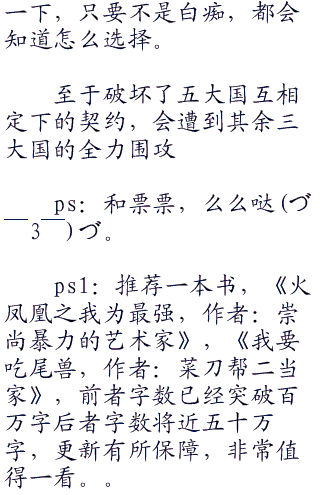 一下，只要不是白痴，都会
知道怎么选择。
至于破坏了五大国互相
定下的契约，会遭到其余三
大国的全力围攻
ps：和票票，么么哒(づ
￣3￣)づ。
ps1：推荐一本书，《火
凤凰之我为最强，作者：崇
尚暴力的艺术家》，《我要
吃尾兽，作者：菜刀帮二当
家》，前者字数已经突破百
万字后者字数将近五十万
字，更新有所保障，非常值
得一看。。